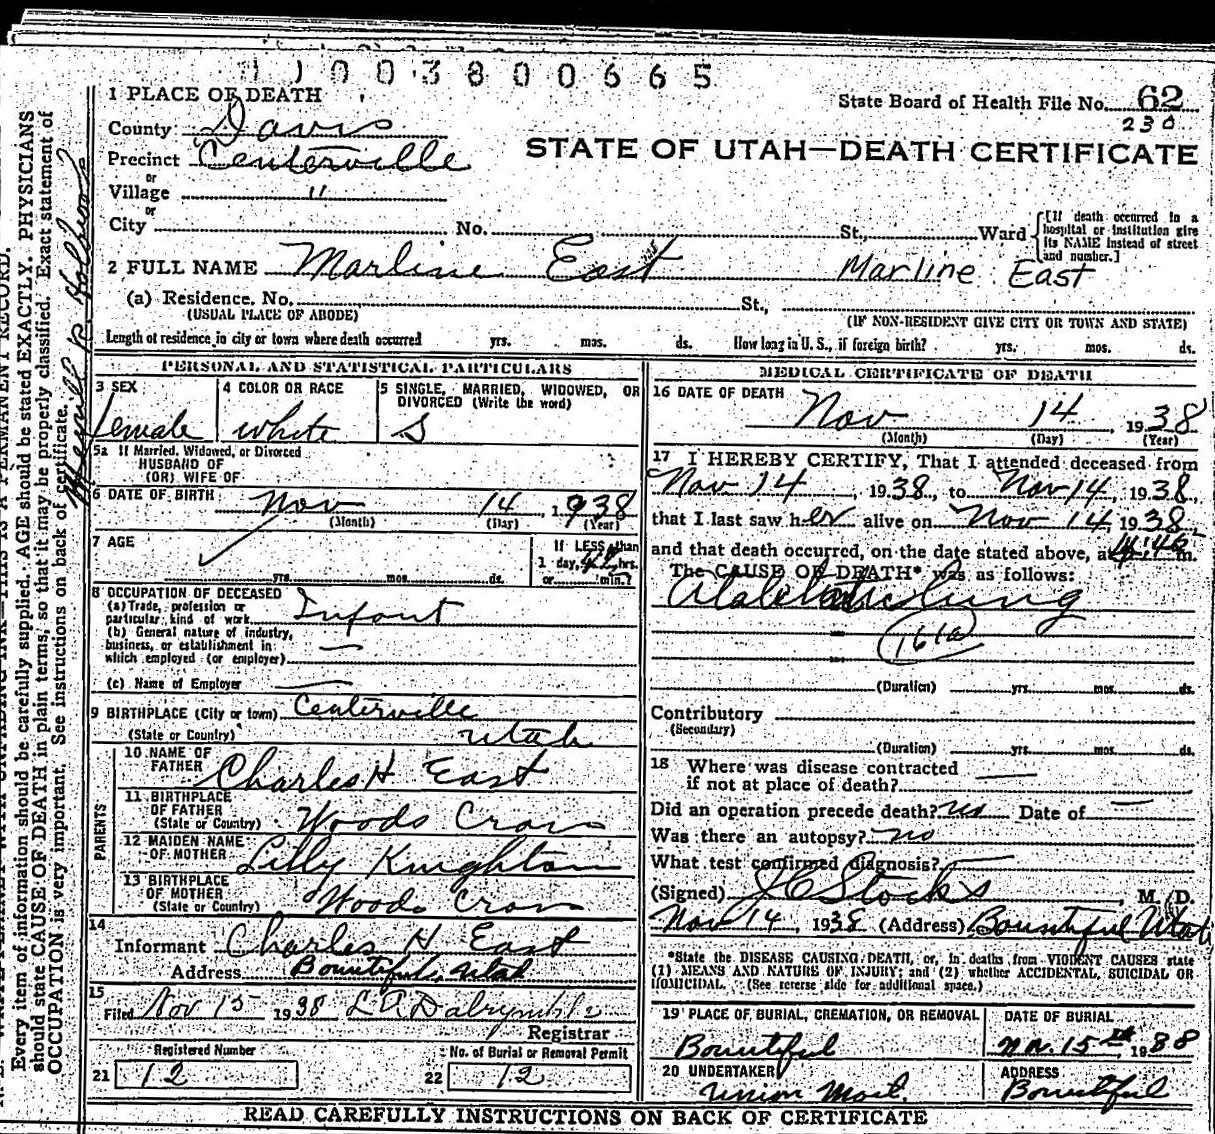 1 1 0 0 3 8 0 0 6 6 5
1 PLACE OF DEATH
State Board of Health File No. 62
230
County Davis
STATE OF UTAH—DEATH CERTIFICATE
Precinct Centerville
or
Village "
or
City No. St., Ward [If death occurred in a hospital or institution give its NAME instead of street and number.]
2 FULL NAME Marline East Marline East
(a) Residence. No. St.,
(USUAL PLACE OF ABODE) (IF NON-RESIDENT GIVE CITY OR TOWN AND STATE)
Length of residence in city or town where death occurred yrs. mos. ds. How long in U. S., if foreign birth? yrs. mos. ds.
PERSONAL AND STATISTICAL PARTICULARS
3 SEX
female
4 COLOR OR RACE
white
5 SINGLE, MARRIED, WIDOWED, OR DIVORCED (Write the word)
S
5a If Married, Widowed, or Divorced
HUSBAND OF
(OR) WIFE OF
6 DATE OF BIRTH Nov 14, 1938
(Month) (Day) (Year)
7 AGE
yrs. mos. ds.
If LESS than
1 day, hrs.
or min.?
8 OCCUPATION OF DECEASED
(a) Trade, profession or
particular kind of work Infant
(b) General nature of industry,
business, or establishment in
which employed (or employer) —
(c) Name of Employer —
9 BIRTHPLACE (City or town) Centerville
(State or Country) Utah
PARENTS
10 NAME OF
FATHER Charles H East
11 BIRTHPLACE
OF FATHER
(State or Country) Woods Cross
12 MAIDEN NAME
OF MOTHER Lilly Knighton
13 BIRTHPLACE
OF MOTHER
(State or Country) Woods Cross
14
Informant Charles H East
Address Bountiful, Utah
15
Filed Nov 15 1938 L A Dalrymple
Registrar
Registered Number
21 12
No. of Burial or Removal Permit
22 12
MEDICAL CERTIFICATE OF DEATH
16 DATE OF DEATH
Nov 14, 1938
(Month) (Day) (Year)
17 I HEREBY CERTIFY, That I attended deceased from
Nov 14, 1938, to Nov 14, 1938,
that I last saw her alive on Nov 14, 1938,
and that death occurred, on the date stated above, at m.
The CAUSE OF DEATH* was as follows:
Lung
161a
(Duration) yrs. mos. ds.
Contributory
(Secondary)
(Duration) yrs. mos. ds.
18 Where was disease contracted
if not at place of death? —
Did an operation precede death? no Date of —
Was there an autopsy? no
What test confirmed diagnosis? —
(Signed) J C Stocks, M. D.
Nov 14, 1938 (Address) Bountiful Utah
*State the DISEASE CAUSING DEATH, or, in deaths from VIOLENT CAUSES state
(1) MEANS AND NATURE OF INJURY; and (2) whether ACCIDENTAL, SUICIDAL OR
HOMICIDAL. (See reverse side for additional space.)
19 PLACE OF BURIAL, CREMATION, OR REMOVAL
Bountiful
DATE OF BURIAL
Nov. 15th, 1938
20 UNDERTAKER
Union Mort.
ADDRESS
Bountiful
READ CAREFULLY INSTRUCTIONS ON BACK OF CERTIFICATE
Every item of information should be carefully supplied. AGE should be stated EXACTLY. PHYSICIANS
should state CAUSE OF DEATH in plain terms, so that it may be properly classified. Exact statement of
OCCUPATION is very important. See instructions on back of certificate.